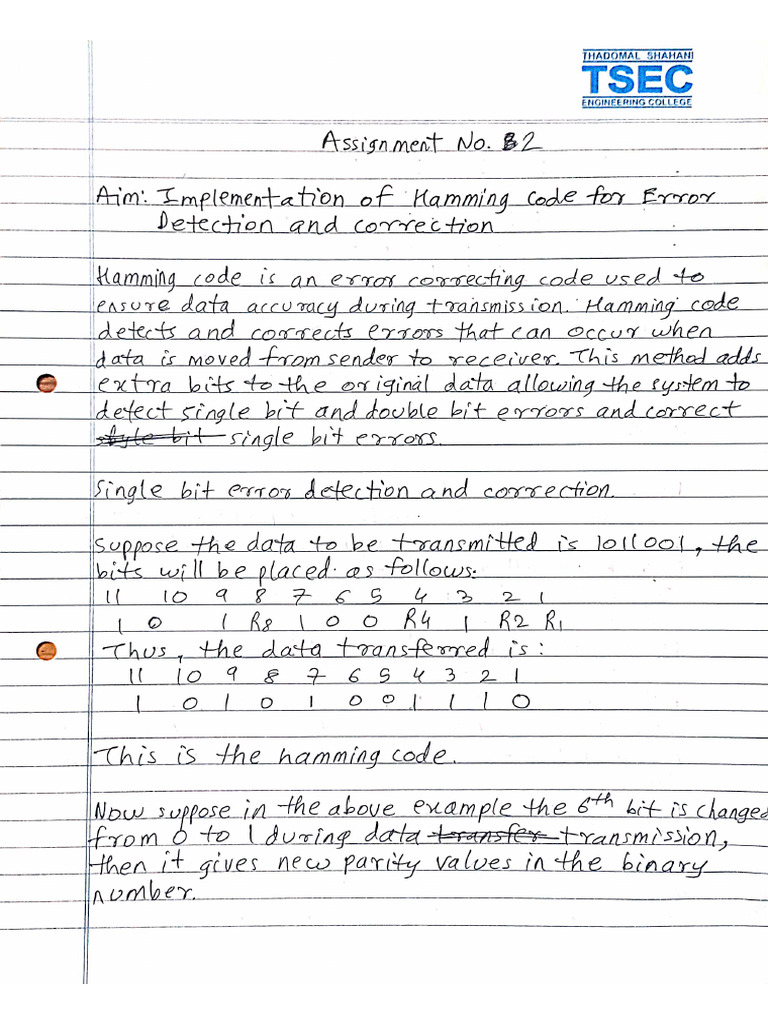 THADOMAL SHAHANI
TSEC
ENGINEERING COLLEGE
Assignment No. 2
Aim: Implementation of Hamming code for Error
Detection and correction
Hamming code is an error correcting code used to
ensure data accuracy during transmission. Hamming code
detects and corrects errors that can occur when
data is moved from sender to receiver. This method adds
extra bits to the original data allowing the system to
detect single bit and double bit errors and correct
single bit errors.
Single bit error detection and correction.
Suppose the data to be transmitted is 1011001, the
bits will be placed as follows:
11 10 9 8 7 6 5 4 3 2 1
1 0 1 R8 1 0 0 R4 1 R2 R1
Thus, the data transferred is:
11 10 9 8 7 6 5 4 3 2 1
1 0 1 0 1 0 0 1 1 1 0
This is the hamming code.
Now suppose in the above example the 6th bit is changed
from 0 to 1 during data transfer transmission,
then it gives new parity values in the binary
number.